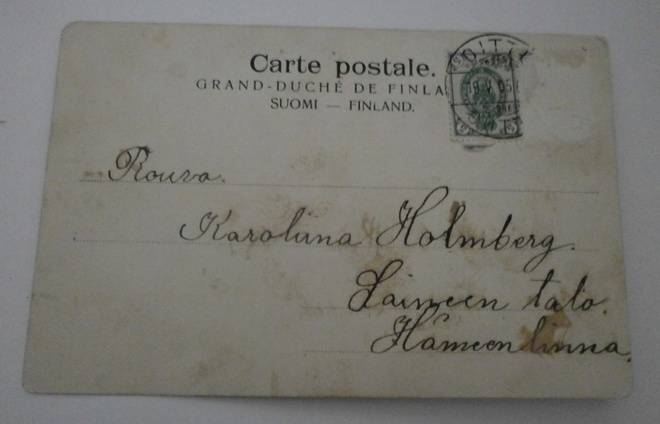 Carte postale.
GRAND-DUCHÉ DE FINLA
SUOMI — FINLAND.
OITT
19 V 05
Rouva.
Karoliina Holmberg.
Laineen talo.
Hämeenlinna.